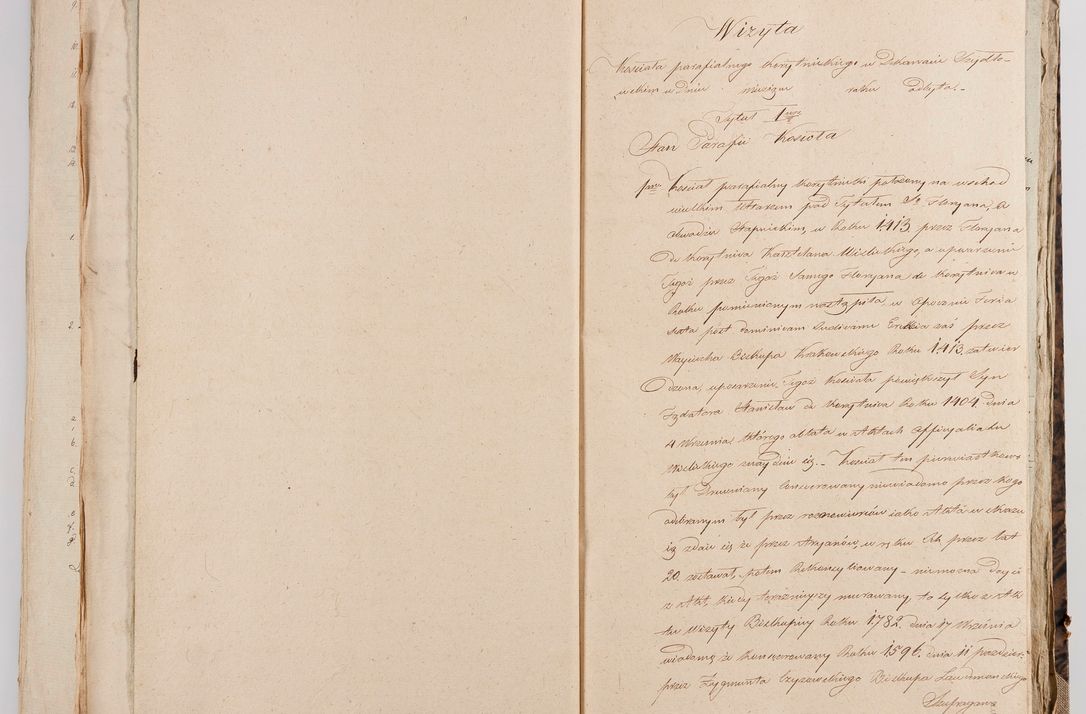 Wizyta
Kościoła parafialnego Korytnickiego w Dekanacie Szydło-
wskim w Dniu miesiąca roku odbyta.-
Tytuł Iwszy
Stan Parafii Kościoła
Kościoł parafialny Korytnicki położony na wschod
wielkim Ołtarzem pod Tytułem Sgo Floryana, w
obwodzie Stopnickim, w Roku 1413 przez Floryana
de Korytnica Kasztelana Wislickiego, a uposarzenie
Tegoż przez Tegoż Samego Floryana de Korytnica w
Roku pomienionym nastąpiła w Opocznie Feria
sexta post Dominicam Erekcia zaś przez
Woyciecha Biskupa Krakowskiego Roku 1413. zatwier
dzona, uposarzenie Tegoż Kościoła powiększył Syn
Fundatora Stanisław de Korytnica Roku 1464 Dnia
4 Września, którego oblata w Aktach Officyalia lu
Wislickiego znayduie się.- Kościoł ten pierwiastkowo
był Drewniany konserowany niewiadomo przez kogo
odebranym był przez roznowierców iako Akta w skazu
ią zdaie się że przez Aryanów, w ręku ich przez lat
20. zostawał, potem Rekoncyliowany - niemożna doyść
z Akt, kiedy teraznieyszy murowany, to tylko z Ak
tu Wizyty Biskupiey Roku 1782. dnia 17 Września
wiadomo, że konserowany Roku 1596. dnia 11 paździer:
przez Zygmunta Czyzowskiego Biskupa Laudimenskiego
Suffragana
9.
10.
11.
1.
2.